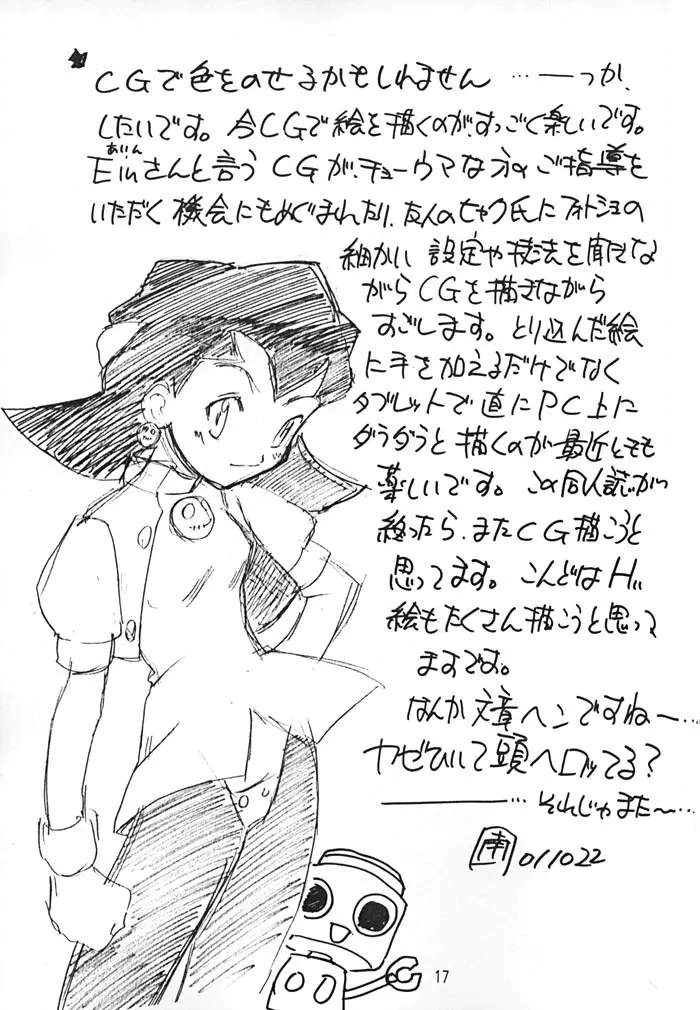 CGで色をのせるかもしれません …──っか、
したいです。今CGで絵を描くのが、すっごく楽しいです。
あいん
Einさんと言うCGが、チョーウマな方のご指導を
いただく機会にもめぐまれたり、友人のセャク氏にフォトショの
細かい設定や技法を聞きな
がらCGを描きながら
すごします。とり込んだ絵
に手を加えるだけでなく
タブレットで直にPC上に
ダラダラと描くのが最近とても
楽しいです。この同人誌が
終ったら、またCG描こうと
思ってます。こんどはH
絵もたくさん描こうと思って
ますです。
なんか文章ヘンですねー…
カゼひいて頭ヘロってる?
──…それじゃまた〜…
南 011022
17